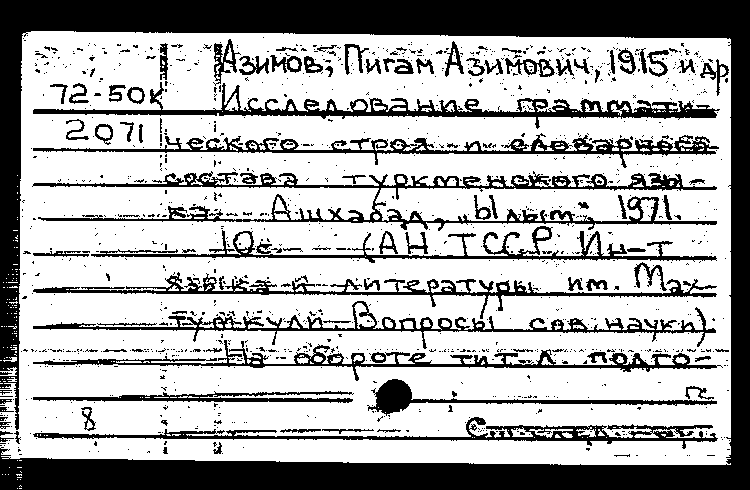 Азимов, Пигам Азимович, 1915 и др.
72-50к Исследование граммати-
2071 ческого строя и словарного
состава туркменского язы-
ка. Ашхабад, „Ылым“, 1971.
10с. (АН ТССР. Ин-т
языка и литературы им. Мах-
тумкули. Вопросы сов. науки)
На обороте тит. л. подго-
8 См. след.